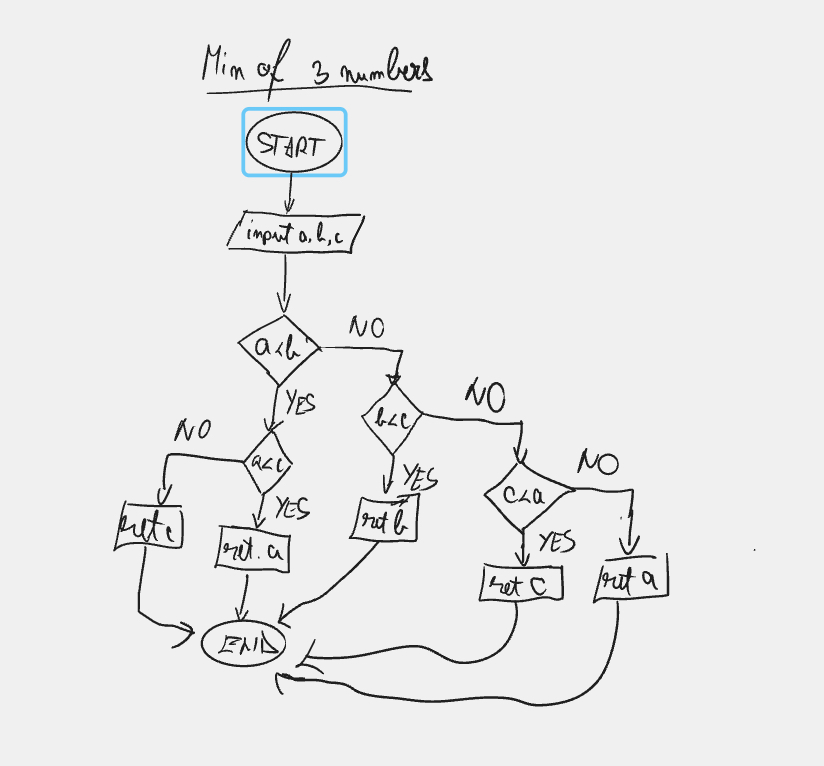 Min of 3 numbers
START
input a, b, c
a<b
NO
YES
b<c
NO
NO
a<c
YES
YES
c<a
NO
ret c
ret. a
ret b
YES
ret C
ret a
END